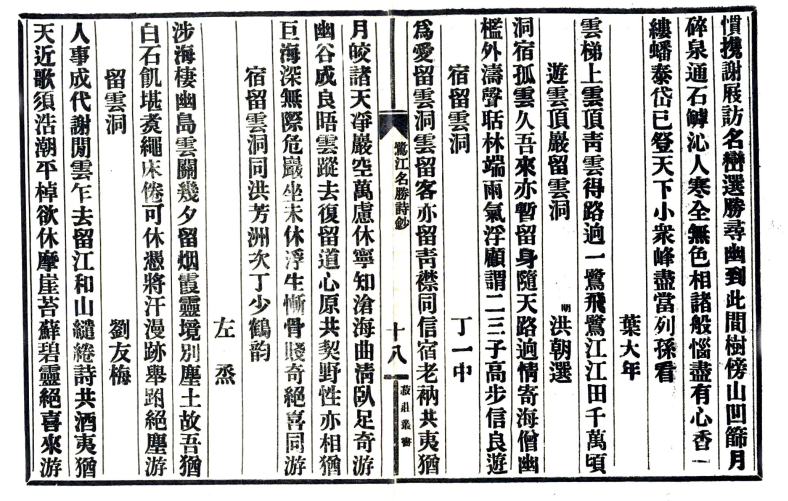 慣携謝屐訪名巒選勝尋幽到此間樹傍山凹篩月
碎泉通石罅沁人寒全無色相諸般惱盡有心香一
縷蟠泰岱已登天下小衆峰盡當列孫看
葉大年
雲梯上雲頂靑雲得路逈一鷺飛鷺江江田千萬頃
遊雲頂巖留雲洞
明 洪朝選
洞宿孤雲久吾來亦暫留身隨天路逈情寄海僧幽
檻外濤聲聒林端雨氣浮顧謂二三子高步信良遊
宿留雲洞
丁一中
爲愛留雲洞雲留客亦留靑襟同信宿老衲共夷猶
鷺江名勝詩鈔
十八
菽莊叢書
月皎諸天淨巖空萬慮休寧知滄海曲淸臥足奇游
幽谷成良晤雲蹤去復留道心原共契野性亦相猶
巨海深無際危巖坐未休浮生慚骨賤奇絕喜同游
宿留雲洞同洪芳洲次丁少鶴韵
左烝
涉海棲幽島雲關幾夕留烟霞靈境別塵土故吾猶
白石飢堪煮繩床倦可休慿將汗漫跡舉踘絕塵游
留雲洞
劉友梅
人事成代謝閒雲乍去留江和山繾綣詩共酒夷猶
天近歌須浩潮平棹欲休摩崖苔蘚碧靈絕喜來游